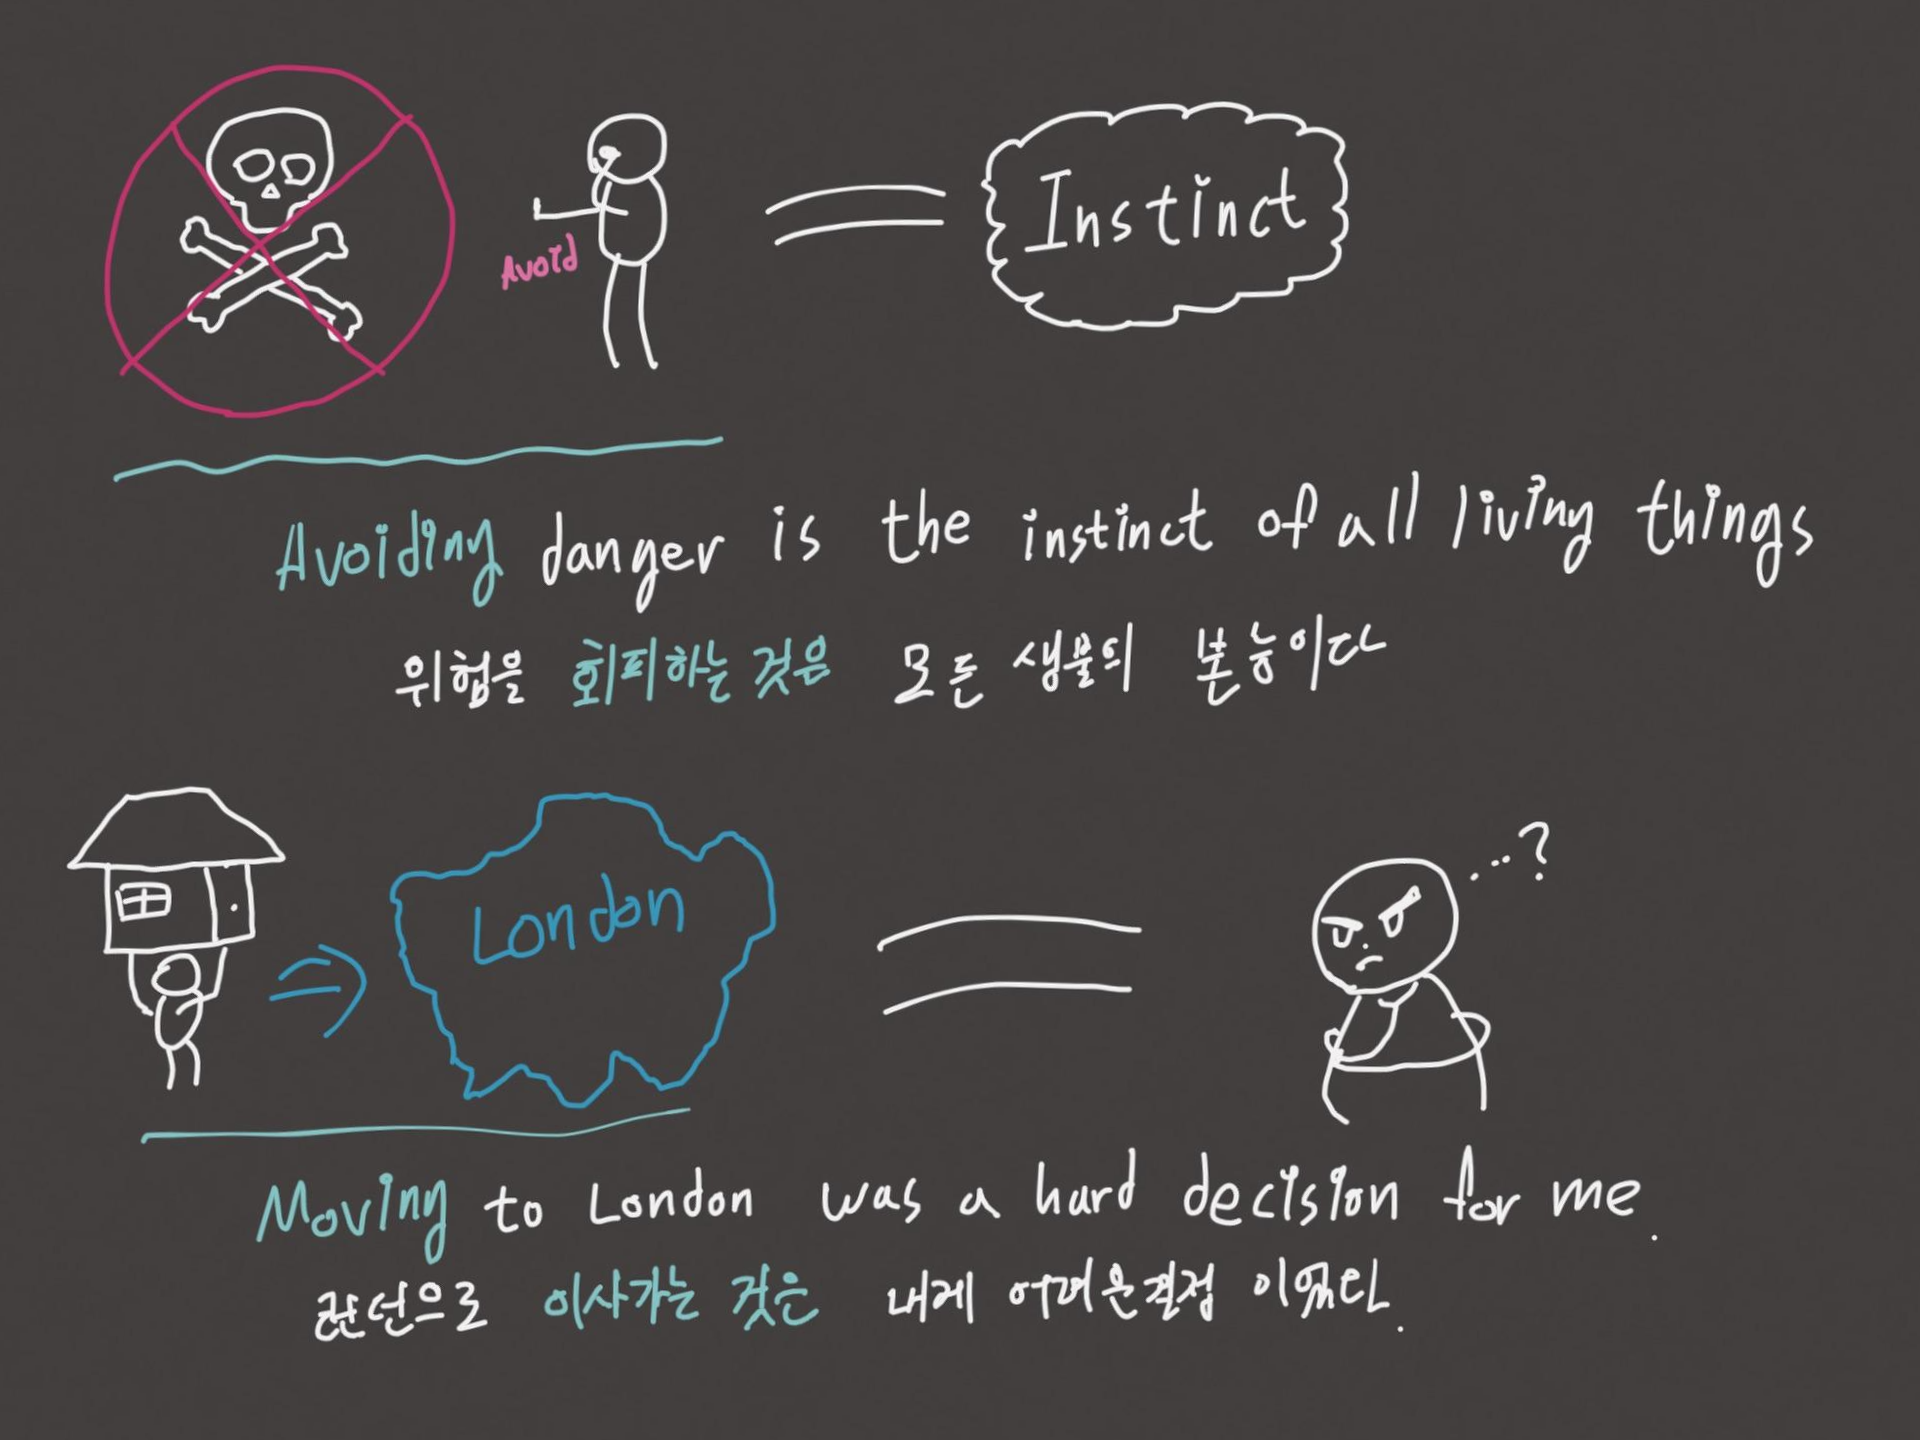 Avoid
Instinct
Avoiding danger is the instinct of all living things
위험을 회피하는 것은 모든 생물의 본능이다
...?
London
Moving to London was a hard decision for me.
런던으로 이사가는 것은 내게 어려운결정 이었다.